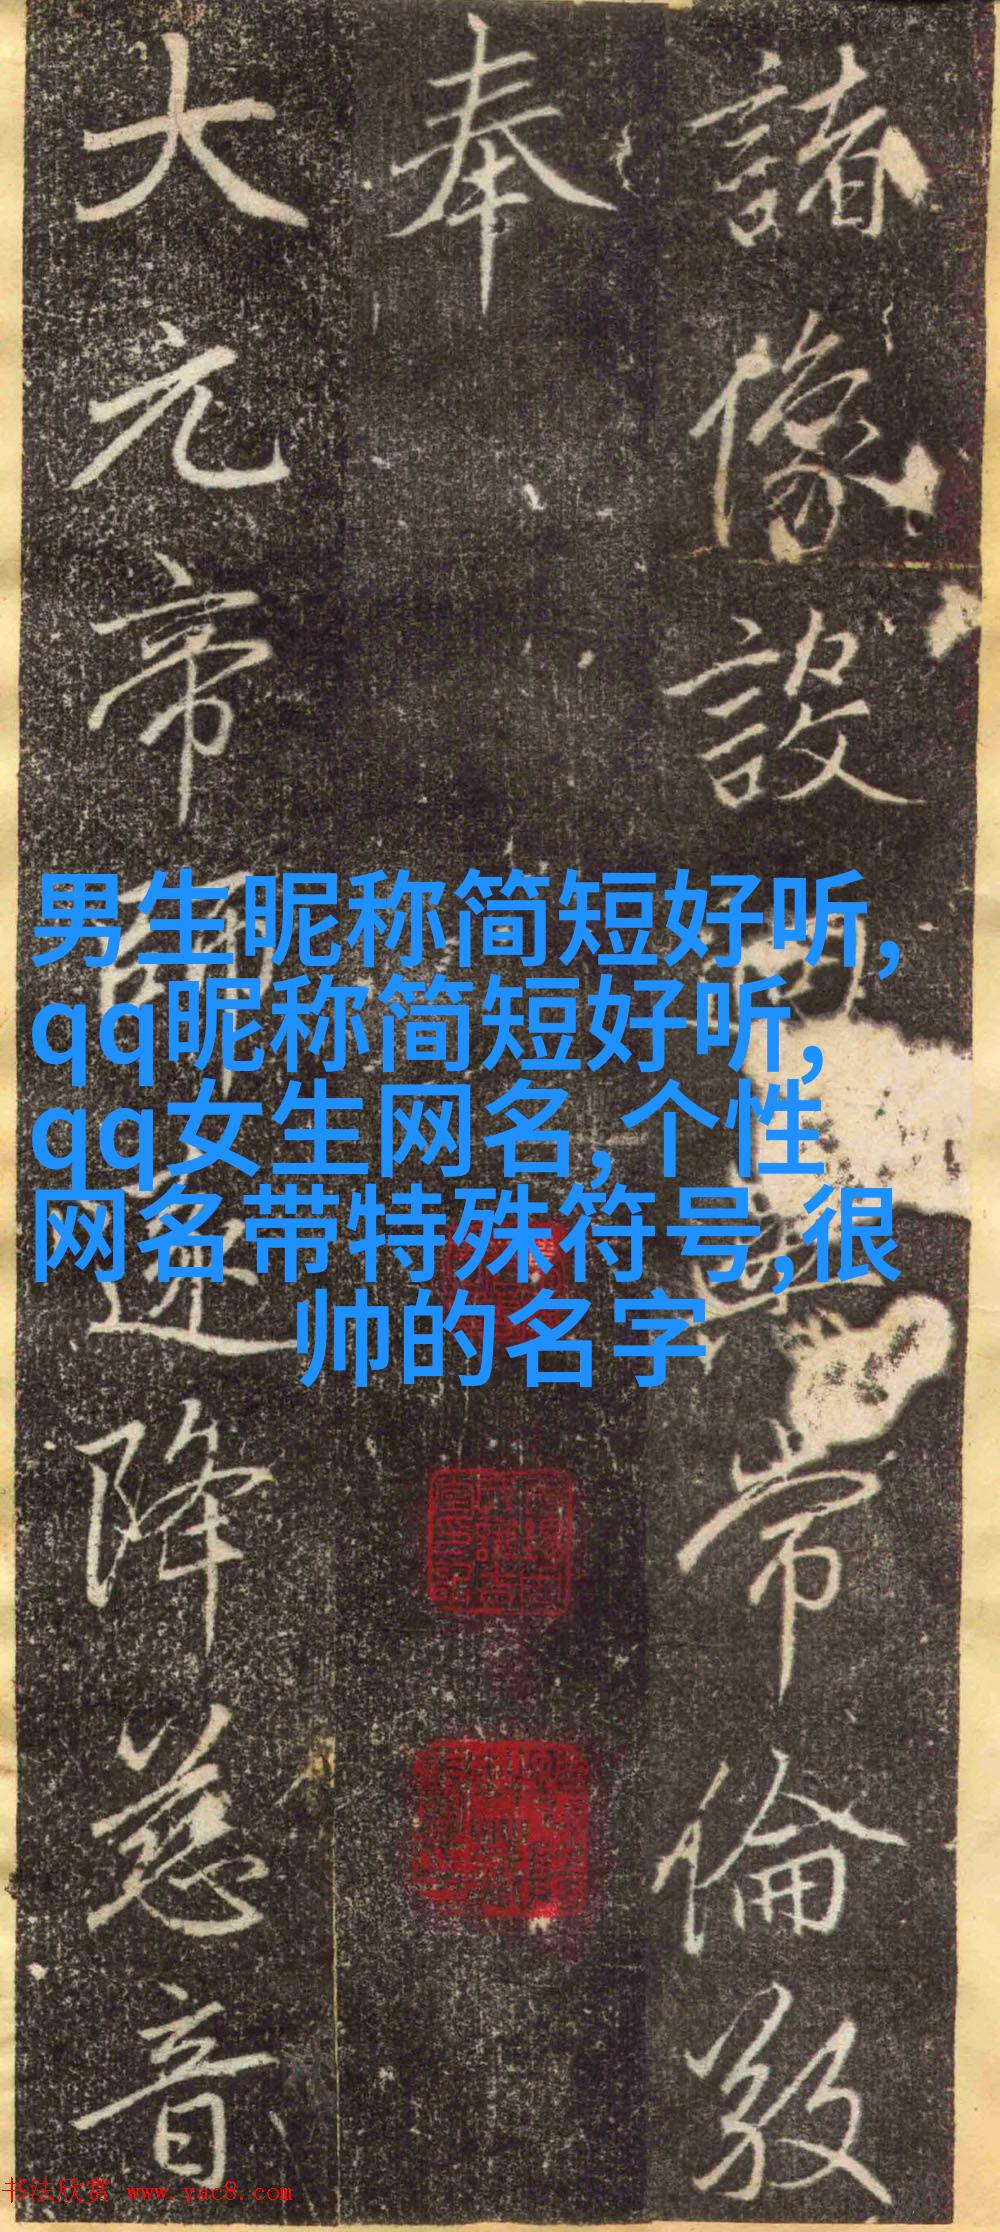 諸像設常倫敎
奉
大元帝師降慈音
男生昵称简短好听,
qq昵称简短好听,
qq女生网名,个性
网名带特殊符号,很
帅的名字
书法欣赏 www.yac8.com